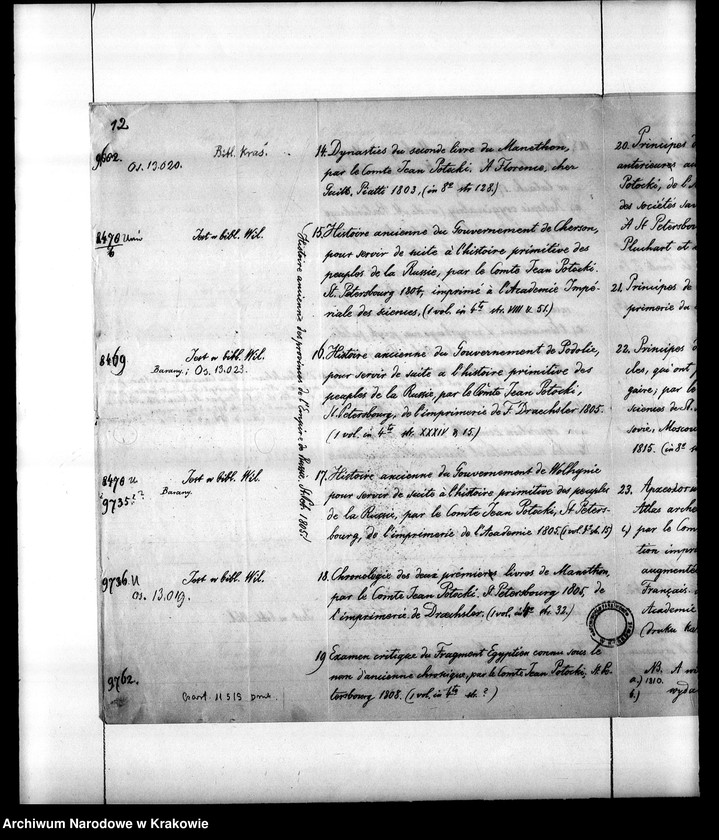 12
9602.
Os. 13.020.
Bibl. Kraś.
14. Dynasties du seconde livre du Manethon,
par le Comte Jean Potocki. A Florence, chez
Guill. Piatti 1803, (in 8º str 128.)
8470 Univ
6
Jest w bibl. Wil.
15. Histoire ancienne du Gouvernement de Cherson,
pour servir de suite à l'histoire primitive des
peuples de la Russie, par le Comte Jean Potocki.
St. Petersbourg 1804, imprimé à l'Academie Impé-
riale des sciences, (1 vol. in 4to str. VIII u. 51.)
Histoire ancienne des provinces de l'Empire de Russie, St. Pet. 1805.
8469.
Jest w bibl. Wil.
Barany; Os. 13.023.
16. Histoire ancienne du Gouvernement de Podolie,
pour servir de suite a l'histoire primitive des
peuples de la Russie, par le Comte Jean Potocki,
St. Petersbourg, de l'imprimerie de F. Draechsler 1805.
(1 vol. in 4to str. XXXIV u 15.)
8470 U
9735
Jest w bibl. Wil.
Barany.
17. Histoire ancienne du Gouvernement de Wolhynie
pour servir de suite à l'histoire primitive des peuples
de la Russie, par le Comte Jean Potocki, St. Peters-
bourg, de l'imprimerie de l'Academie 1805.
9736. U
Os. 13.019.
Jest w bibl. Wil.
18. Chronologie des deux prémieres livres de Manethon,
par le Comte Jean Potocki. St Petersbourg 1805, de
l'imprimerie de Draechsler. (1 vol. in 4to str. 32.)
9762.
19 Examen critique du Fragment Egyptien connu sous le
nom d'ancienne chronique, par le Comte Jean Potocki, St. Pe-
tersbourg 1808. (1 vol. in 4to str. ?)
20. Principes d
anterieures au
Potocki, de l'A
des sociétés sav
A St Petersbo
Pluchart et
21. Principes de
primerie du
22. Principes d
cles, qui ont
gaire; par le
sciences de St.
sovie, Moscou
1815. (in 8º st
23.
Atlas arche
par le Com
tion impri
augmentée
Français.
Academie
(druku kar
NB. A w
a.) 1810.
b.) wydu
Archiwum Narodowe w Krakowie